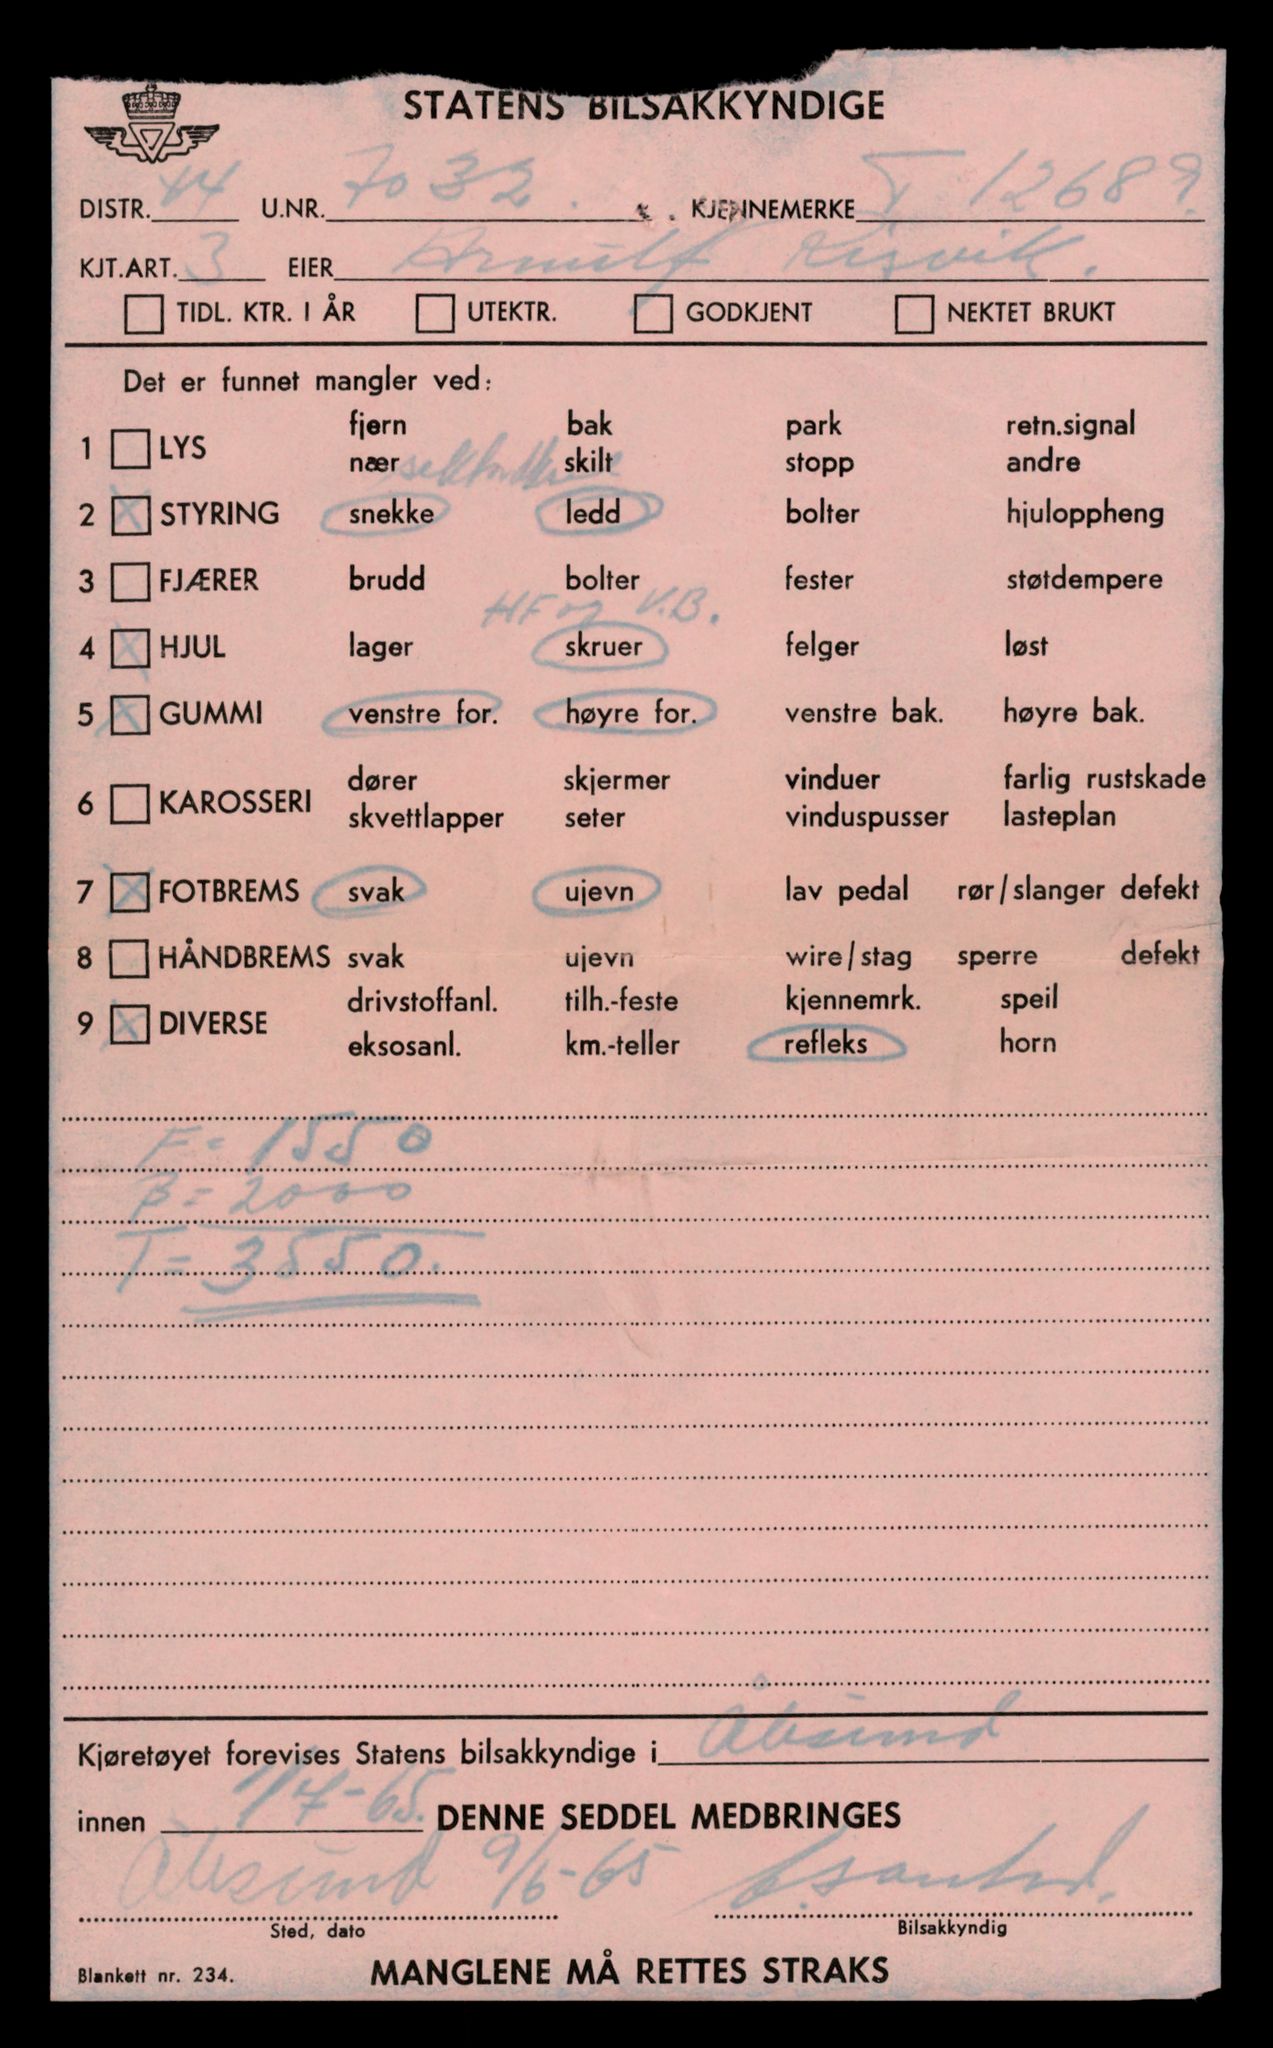 STATENS BILSAKKYNDIGE
DISTR. 44 U.NR. 7032. KJENNEMERKE T 12689
KJT.ART. 3 EIER Arnulf Risvik.
TIDL. KTR. I ÅR UTEKTR. GODKJENT NEKTET BRUKT
Det er funnet mangler ved:
fjern bak park retn.signal
1 LYS
nær skilt stopp andre
2 STYRING snekke ledd bolter hjuloppheng
3 FJÆRER brudd bolter fester støtdempere
HF og V.B.
4 HJUL lager skruer felger løst
5 GUMMI venstre for. høyre for. venstre bak. høyre bak.
dører skjermer vinduer farlig rustskade
6 KAROSSERI
skvettlapper seter vinduspusser lasteplan
7 FOTBREMS svak ujevn lav pedal rør/slanger defekt
8 HÅNDBREMS svak ujevn wire/stag sperre defekt
drivstoffanl. tilh.-feste kjennemrk. speil
9 DIVERSE
eksosanl. km.-teller refleks horn
F = 1550
B = 2000
T = 3550.
Kjøretøyet forevises Statens bilsakkyndige i Ålesund
innen 1/7-65. DENNE SEDDEL MEDBRINGES
Ålesund 9/6-65
Sted, dato Bilsakkyndig
Blankett nr. 234. MANGLENE MÅ RETTES STRAKS